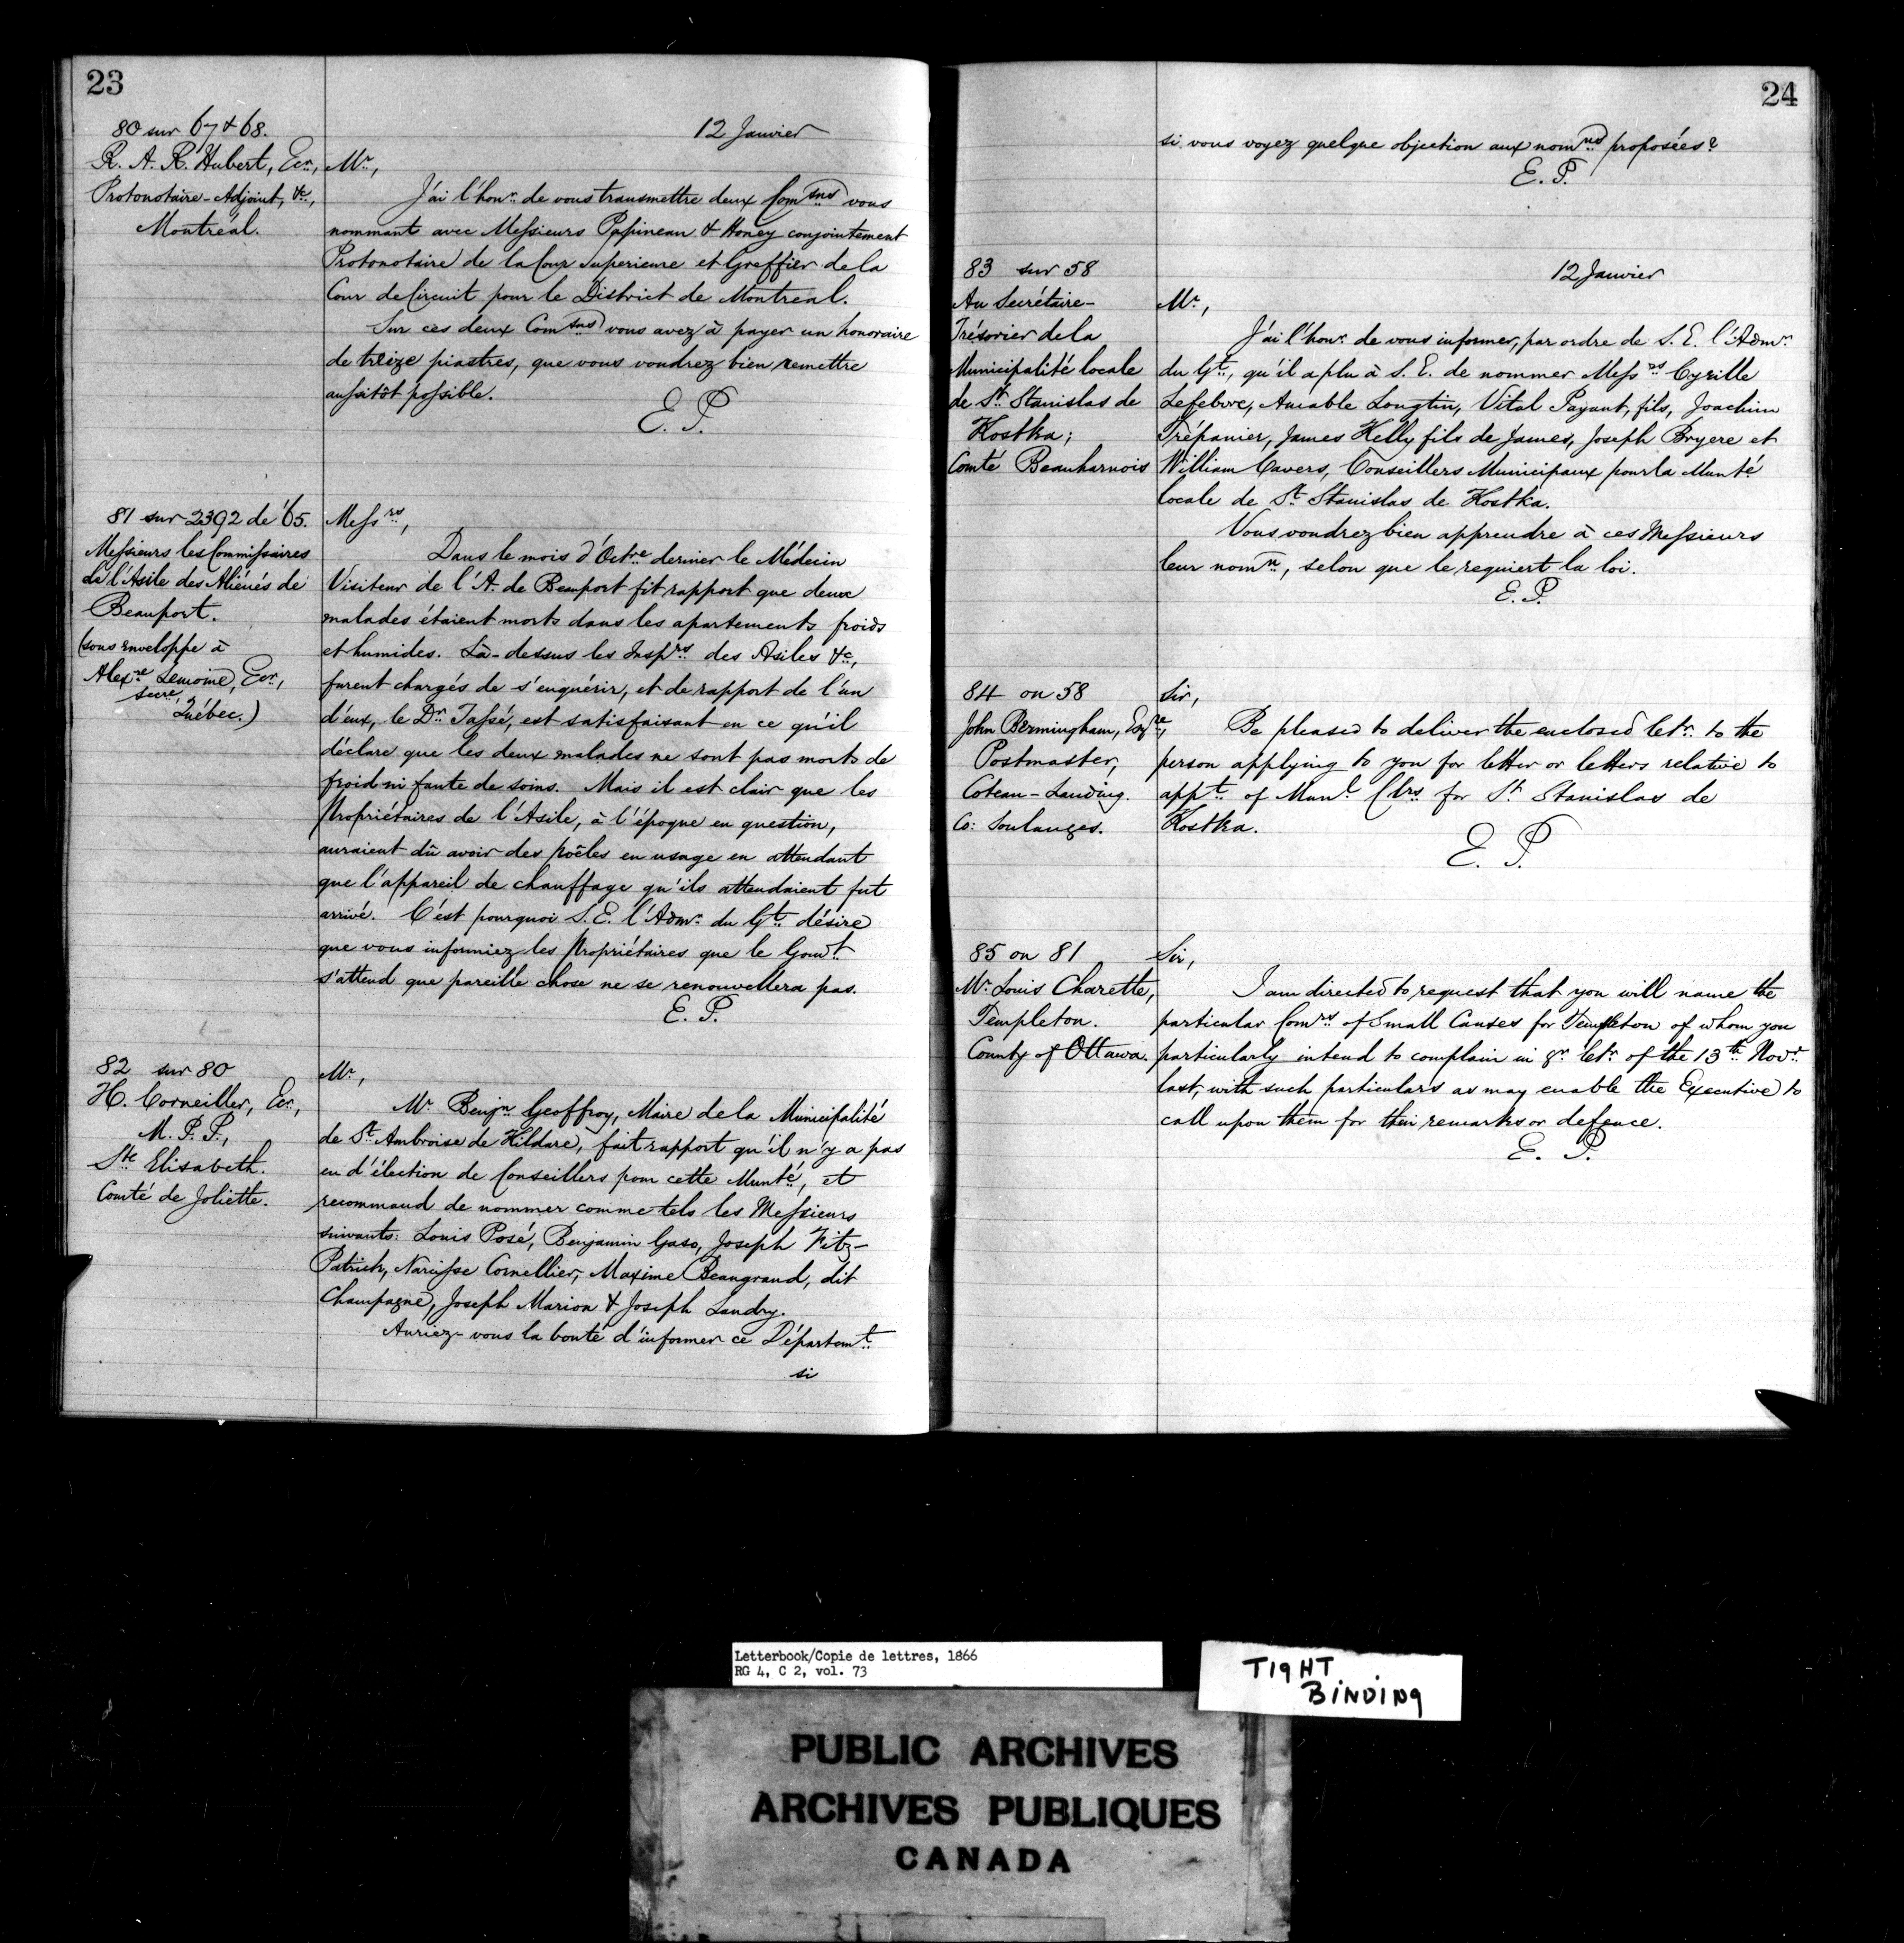 23
80 sur 67 & 68.
R. A. R. Hubert, Ecr.,
Protonotaire-Adjoint, &c.,
Montréal.
12 Janvier
Mr.,
J'ai l'honr. de vous transmettre deux Comsns vous
nommant avec Messieurs Papineau & Honey conjointement
Protonotaire de la Cour Superieure et Greffier de la
Cour de Circuit pour le District de Montreal.
Sur ces deux Comsns vous avez à payer un honoraire
de treize piastres, que vous voudrez bien remettre
aussitôt possible.
E. P.
81 sur 2392 de '65.
Messieurs les Commissaires
de l'Asile des Aliénés de
Beauport.
(sous enveloppe à
Alexre Lemoine, Ecr.,
Secre,
Québec.)
Messrs,
Dans le mois d'Octre dernier le Médecin
Visiteur de l'A. de Beauport fit rapport que deux
malades étaient morts dans les apartements froids
et humides. Là-dessus les Insprs des Asiles &c,
furent chargés de s'enquérir, et de rapport de l'un
d'eux, le Dr Tassé, est satisfaisant en ce qu'il
déclare que les deux malades ne sont pas morts de
froid ni faute de soins. Mais il est clair que les
Propriétaires de l'Asile, à l'époque en question,
auraient dû avoir des poêles en usage en attendant
que l'appareil de chauffage qu'ils attendaient fut
arrivé. C'est pourquoi S. E. l'Admr. du Gt. désire
que vous informiez les Propriétaires que le Gouvt.
s'attend que pareille chose ne se renouvellera pas.
E. P.
82 sur 80
H. Corneiller, Ecr.,
M. P. P.,
Ste Elisabeth.
Comté de Joliette.
Mr.,
Mr Benjn Geoffroy, Maire de la Municipalité
de St. Ambroise de Kildare, fait rapport qu'il n'y a pas
eu d'élection de Conseillers pour cette Munté, et
recommand de nommer comme tels les Messieurs
suivants: Louis Posé, Benjamin Gaso, Joseph Fitz-
Patrick, Narcisse Cornellier, Maxime Beaugrand, dit
Champagne, Joseph Marion & Joseph Landry.
Auriez-vous la bonté d'informer ce Départemt.
si
24
si vous voyez quelque objection aux nomns proposées?
E. P.
83 sur 58
Au Secrétaire-
Trésorier de la
Municipalité locale
de St. Stanislas de
Kostka;
Comté Beauharnois
12 Janvier
Mr.,
J'ai l'honr. de vous informer, par ordre de S. E. l'Admr.
du Gt., qu'il a plu à S. E. de nommer Messrs Cyrille
Lefebvre, Amable Longtin, Vital Payant, fils, Joachim
Trépanier, James Kelly fils de James, Joseph Bryere et
William Cavers, Conseillers Municipaux pour la Munté
locale de St Stanislas de Kostka.
Vous voudrez bien apprendre à ces Messieurs
leur nomn, selon que le requiert la loi.
E. P.
84 on 58
John Bermingham, Esqre,
Postmaster,
Coteau-Landing.
Co: Soulanges.
Sir,
Be pleased to deliver the enclosed letr. to the
person applying to you for letter or letters relative to
appt. of Munl Clrs for St Stanislas de
Kostka.
E. P.
85 on 81
Mr. Louis Charette,
Templeton.
County of Ottawa.
Sir,
I am directed to request that you will name the
particular Comrs of Small Causes for Templeton of whom you
particularly intend to complain in yr. letr. of the 13th Novr.
last, with such particulars as may enable the Executive to
call upon them for their remarks or defence.
E. P.
Letterbook/Copie de lettres, 1866
RG 4, C 2, vol. 73
TIGHT
BINDING
PUBLIC ARCHIVES
ARCHIVES PUBLIQUES
CANADA